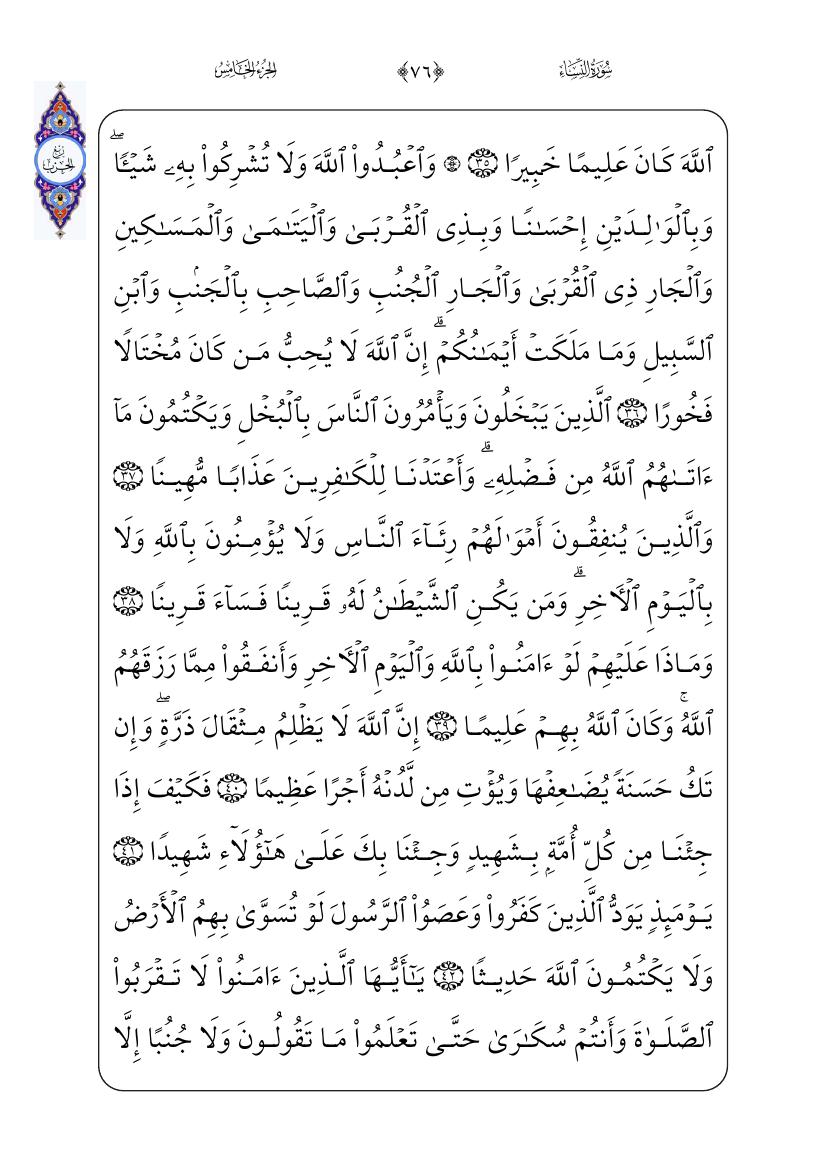 سُورَةُ النِّسَاءِ ﴿٧٦﴾ الجُزْءُ الخَامِسُ
رُبْعُ الحِزْبِ
ٱللَّهَ كَانَ عَلِيمًا خَبِيرًا ٣٥ ۞ وَٱعْبُدُوا۟ ٱللَّهَ وَلَا تُشْرِكُوا۟ بِهِۦ شَيْـًٔا ۖ
وَبِٱلْوَٰلِدَيْنِ إِحْسَـٰنًا وَبِذِى ٱلْقُرْبَىٰ وَٱلْيَتَـٰمَىٰ وَٱلْمَسَـٰكِينِ
وَٱلْجَارِ ذِى ٱلْقُرْبَىٰ وَٱلْجَارِ ٱلْجُنُبِ وَٱلصَّاحِبِ بِٱلْجَنۢبِ وَٱبْنِ
ٱلسَّبِيلِ وَمَا مَلَكَتْ أَيْمَـٰنُكُمْ ۗ إِنَّ ٱللَّهَ لَا يُحِبُّ مَن كَانَ مُخْتَالًا
فَخُورًا ٣٦ ٱلَّذِينَ يَبْخَلُونَ وَيَأْمُرُونَ ٱلنَّاسَ بِٱلْبُخْلِ وَيَكْتُمُونَ مَآ
ءَاتَىٰهُمُ ٱللَّهُ مِن فَضْلِهِۦ ۗ وَأَعْتَدْنَا لِلْكَـٰفِرِينَ عَذَابًا مُّهِينًا ٣٧
وَٱلَّذِينَ يُنفِقُونَ أَمْوَٰلَهُمْ رِئَآءَ ٱلنَّاسِ وَلَا يُؤْمِنُونَ بِٱللَّهِ وَلَا
بِٱلْيَوْمِ ٱلْـَٔاخِرِ ۗ وَمَن يَكُنِ ٱلشَّيْطَـٰنُ لَهُۥ قَرِينًا فَسَآءَ قَرِينًا ٣٨
وَمَاذَا عَلَيْهِمْ لَوْ ءَامَنُوا۟ بِٱللَّهِ وَٱلْيَوْمِ ٱلْـَٔاخِرِ وَأَنفَقُوا۟ مِمَّا رَزَقَهُمُ
ٱللَّهُ ۚ وَكَانَ ٱللَّهُ بِهِمْ عَلِيمًا ٣٩ إِنَّ ٱللَّهَ لَا يَظْلِمُ مِثْقَالَ ذَرَّةٍ ۖ وَإِن
تَكُ حَسَنَةً يُضَـٰعِفْهَا وَيُؤْتِ مِن لَّدُنْهُ أَجْرًا عَظِيمًا ٤٠ فَكَيْفَ إِذَا
جِئْنَا مِن كُلِّ أُمَّةٍۭ بِشَهِيدٍ وَجِئْنَا بِكَ عَلَىٰ هَـٰٓؤُلَآءِ شَهِيدًا ٤١
يَوْمَئِذٍ يَوَدُّ ٱلَّذِينَ كَفَرُوا۟ وَعَصَوُا۟ ٱلرَّسُولَ لَوْ تُسَوَّىٰ بِهِمُ ٱلْأَرْضُ
وَلَا يَكْتُمُونَ ٱللَّهَ حَدِيثًا ٤٢ يَـٰٓأَيُّهَا ٱلَّذِينَ ءَامَنُوا۟ لَا تَقْرَبُوا۟
ٱلصَّلَوٰةَ وَأَنتُمْ سُكَـٰرَىٰ حَتَّىٰ تَعْلَمُوا۟ مَا تَقُولُونَ وَلَا جُنُبًا إِلَّا